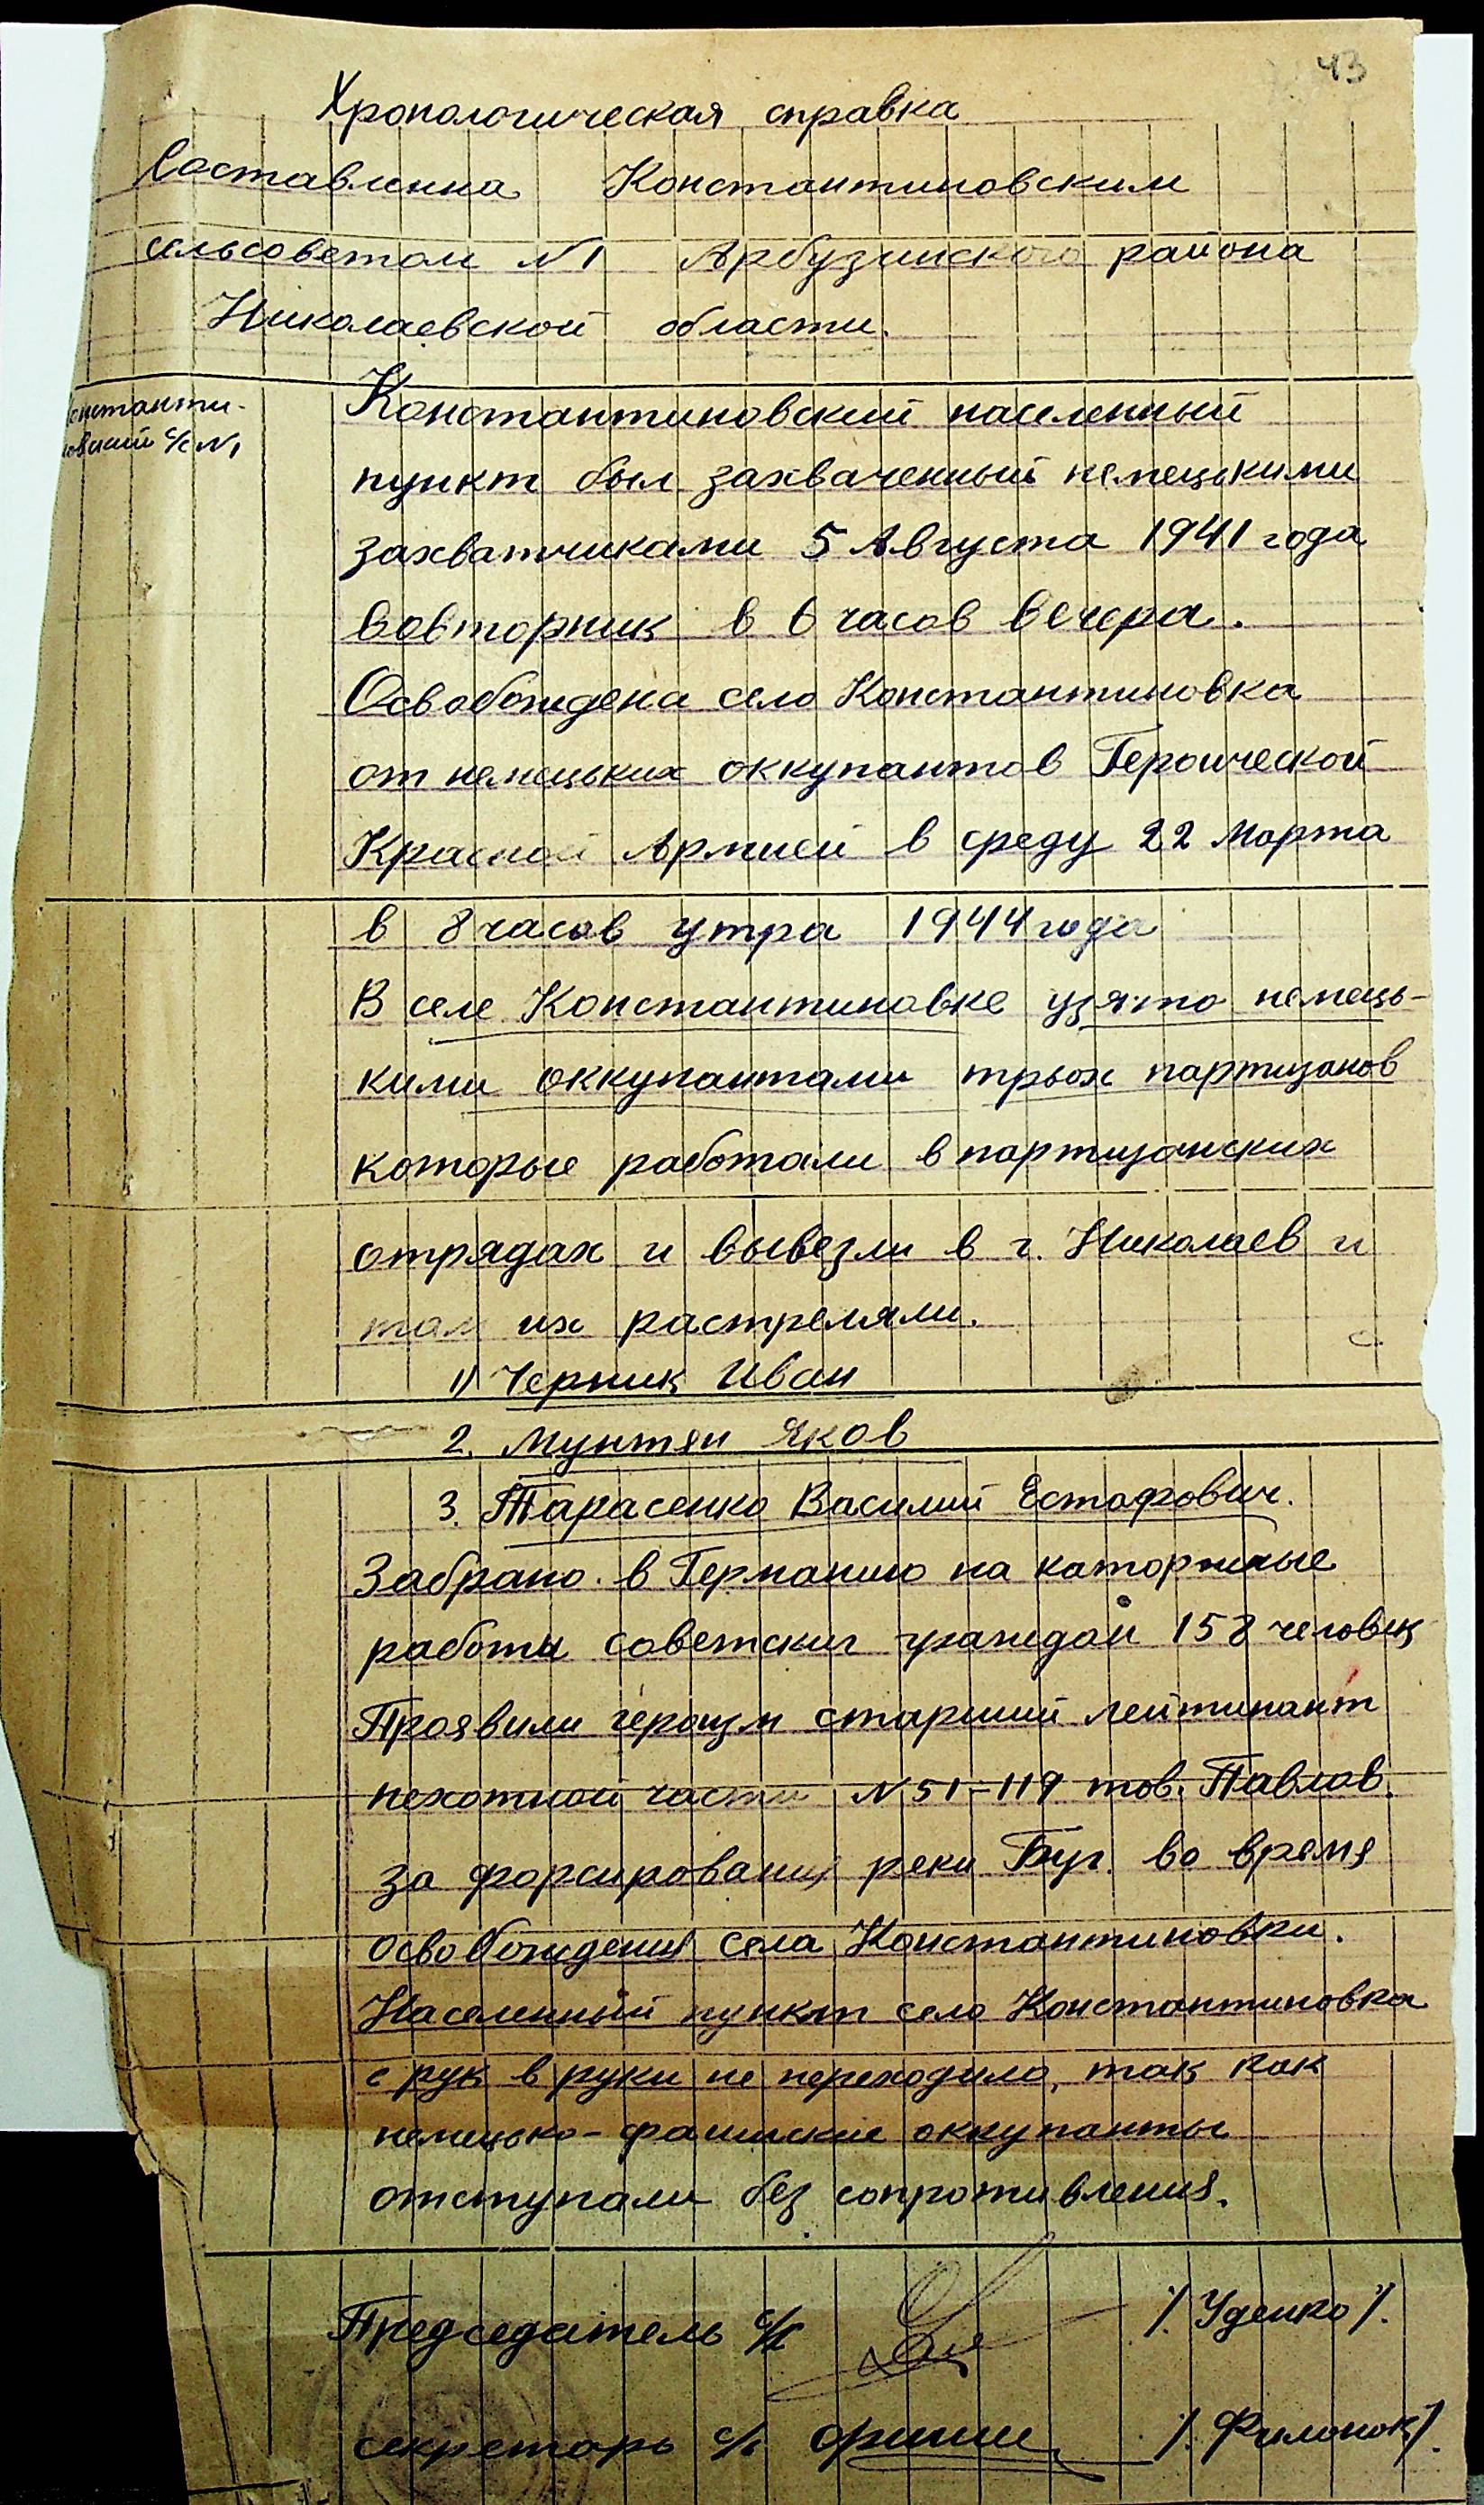 43
Хронологическая справка
Составленна Константиновским
сельсоветом №1 Арбузинского района
Николаевской области.
онстанти-
овский с/с №1
Константиновский населенный
пункт был захваченный немецькими
захватчиками 5 Августа 1941 года
вовторник в 6 часов вечера.
Освобождена село Константиновка
от немецьких оккупантов Героической
Красной Армией в среду 22 Марта
в 8 часов утра 1944 года
В селе Константиновке узято немець-
кими оккупантами трьох партизанов
которые работали в партизанских
отрядах и вывезли в г. Николаев и
там их растреляли.
1) Черник Иван
2. Мунтян Яков
3. Тарасенко Василий Естафович.
Забрано в Германию на каторжные
работы советских граждан 158 человек
Проявили героизм старший лейтинант
пехотной части №51-119 тов. Павлов.
за форсирования реки Буг. во время
освобождения села Константиновки.
Населенный пункт село Константиновка
с рук в руки не переходило, так как
немецько-фашиские оккупанты
отступали без сопротивления.
Председатель с/с /. Уденко /.
секретарь с/с /. Филонок /.